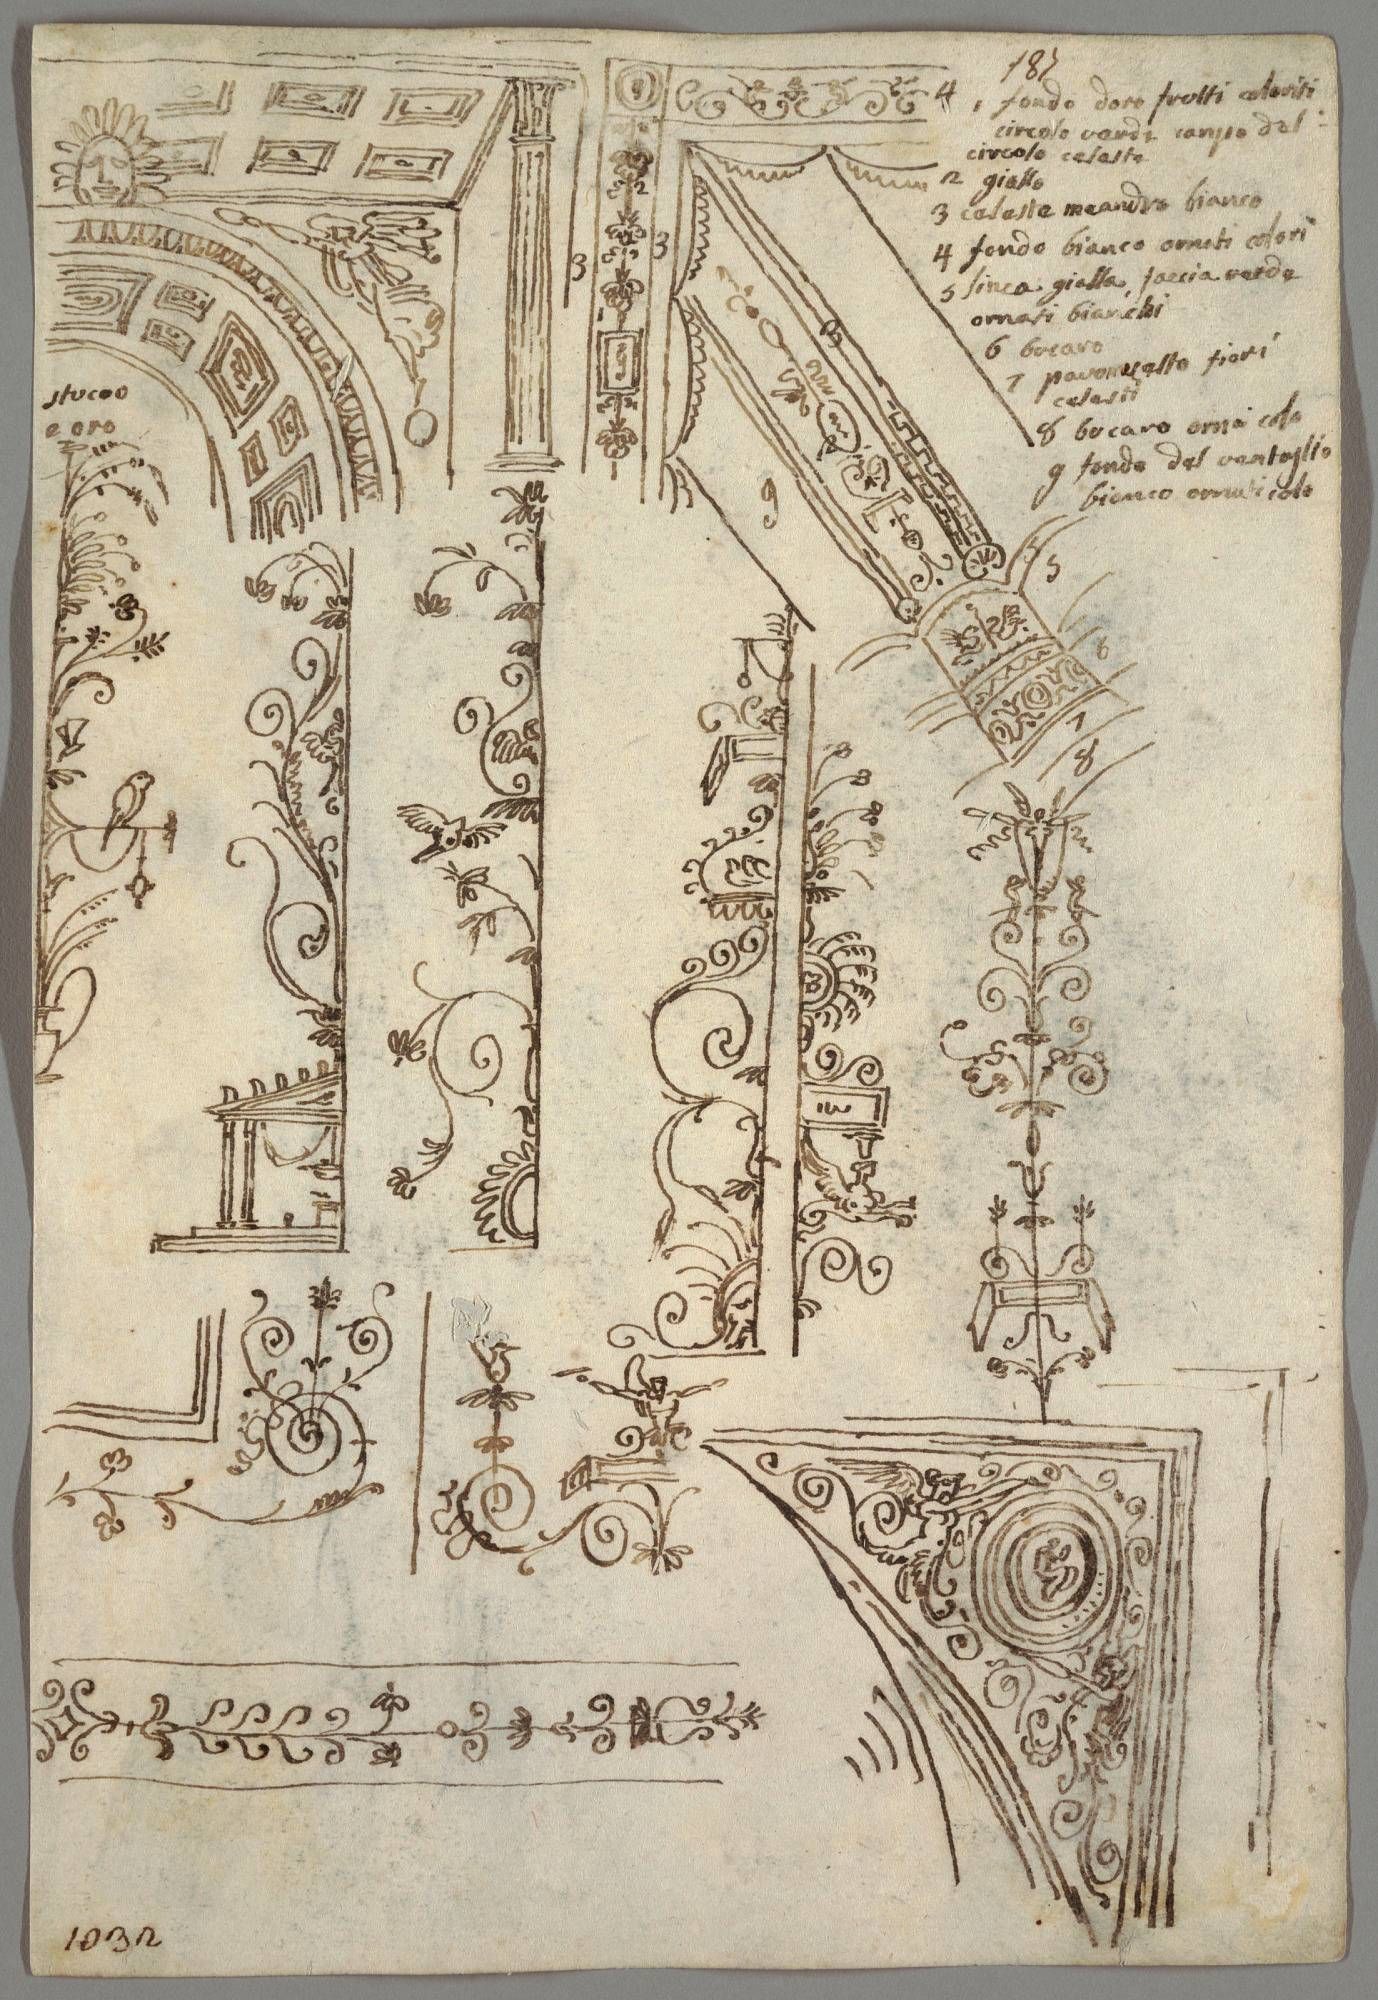 187
4
1 fondo doro frutti coloriti
circolo verde campo del
circolo celeste
2 giallo
3 celeste meandro bianco
4 fondo bianco ornati colori
5 linea gialla, faccia verde
ornati bianchi
6 bucaro
7 pavonazetto fiori
celesti
8 bucaro orna colo
9 fondo del ventaglio
bianco ornati colo
2
3
3
9
9
8
5
6
7
8
stucco
e oro
1032